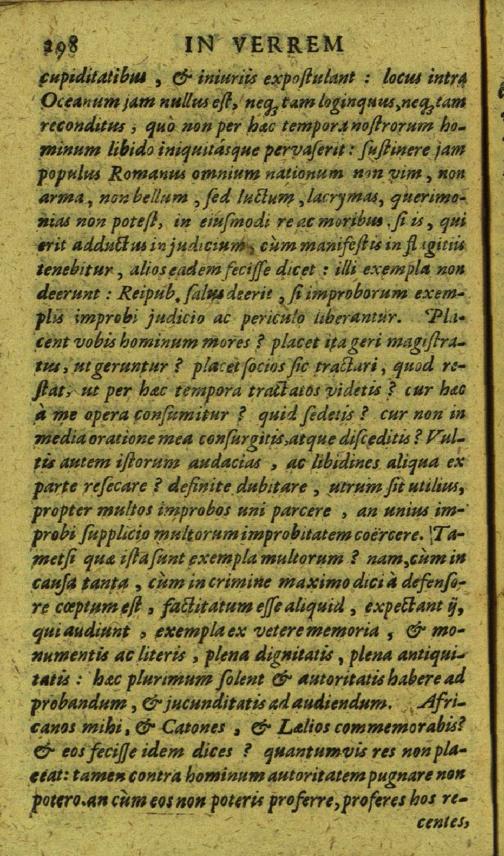 298 IN VERREM
cupiditatibus, & iniuriis expoſtulant : locus intra
Oceanum jam nullus eſt, neq; tam loginquus, neq; tam
reconditus, quò non per hæc tempora noſtrorum ho-
minum libido iniquitásque pervaſerit : ſuſtinere jam
populus Romanus omnium nationum non vim, non
arma, non bellum, ſed luctum, lacrymas, querimo-
nias non poteſt, in eiuſmodi re ac moribus. ſi is, qui
erit adductus in judicium, cùm manifeſtis in flagitiis
tenebitur, alios eadem feciſſe dicet : illi exempla non
deerunt : Reipub. ſalus deerit, ſi improborum exem-
plis improbi judicio ac periculo liberantur. Pla-
cent vobis hominum mores ? placet ita geri magiſtra-
tus, ut geruntur ? placet ſocios ſic tractari, quod re-
ſtat, ut per hæc tempora tractatos videtis ? cur hæc
à me opera conſumitur ? quid ſedetis ? cur non in
media oratione mea conſurgitis, atque diſceditis ? Vul-
tis autem iſtorum audacias, ac libidines aliqua ex
parte reſecare ? definite dubitare, utrum ſit utilius,
propter multos improbos uni parcere, an unius im-
probi ſupplicio multorum improbitatem coërcere. Ta-
metſi quæ iſta ſunt exempla multorum ? nam, cùm in
cauſa tanta, cùm in crimine maximo dici à defenſo-
re cœptum eſt, factitatum eſſe aliquid, expectant ij,
qui audiunt, exempla ex vetere memoria, & mo-
numentis ac literis, plena dignitatis, plena antiqui-
tatis : hæc plurimum ſolent & autoritatis habere ad
probandum, & jucunditatis ad audiendum. Afri-
canos mihi, & Catones, & Lælios commemorabis?
& eos feciſſe idem dices ? quantumvis res non pla-
ceat: tamen contra hominum autoritatem pugnare non
potero. an cùm eos non poteris proferre, proferes hos re-
centes,